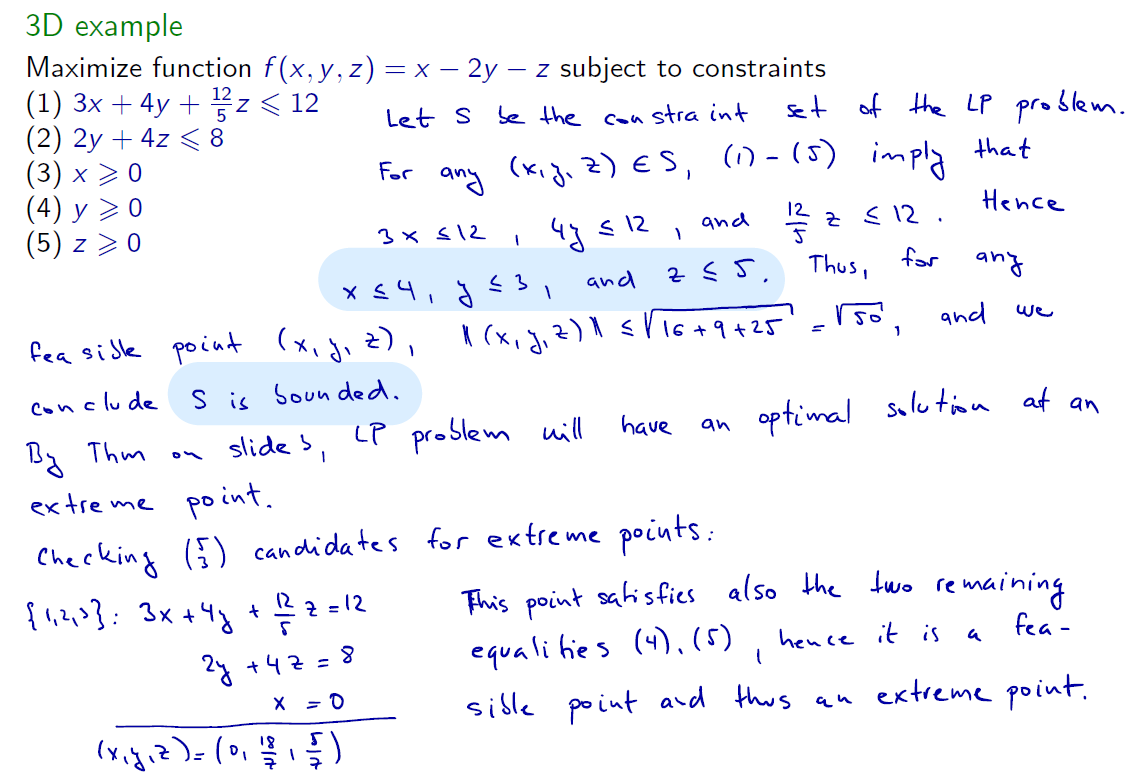 3D example
Maximize function f(x, y, z) = x − 2y − z subject to constraints
(1) 3x + 4y + 12/5 z ⩽ 12
(2) 2y + 4z ⩽ 8
(3) x ⩾ 0
(4) y ⩾ 0
(5) z ⩾ 0
Let S be the constraint set of the LP problem.
For any (x, y, z) ∈ S, (1) - (5) imply that
3x ≤ 12, 4y ≤ 12, and 12/5 z ≤ 12. Hence
x ≤ 4, y ≤ 3, and z ≤ 5. Thus, for any
feasible point (x, y, z), ‖(x, y, z)‖ ≤ √(16 + 9 + 25) = √50, and we
conclude S is bounded.
By Thm on slide 3, LP problem will have an optimal solution at an
extreme point.
Checking (5 3) candidates for extreme points:
{1,2,3}: 3x + 4y + 12/5 z = 12
2y + 4z = 8
x = 0
(x, y, z) = (0, 18/7, 5/7)
This point satisfies also the two remaining
equalities (4), (5), hence it is a fea-
sible point and thus an extreme point.